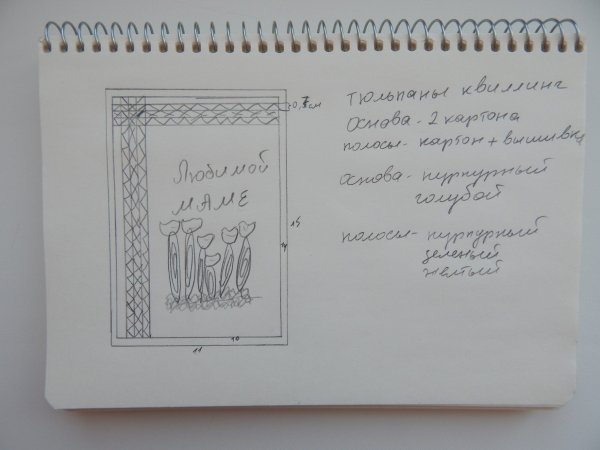 0,7 см
Любимой
маме
15
14
10
11
тюльпаны квиллинг
основа - 2 картона
полосы - картон + вышивка
основа - пурпурный
голубой
полосы - пурпурный
зеленый
желтый